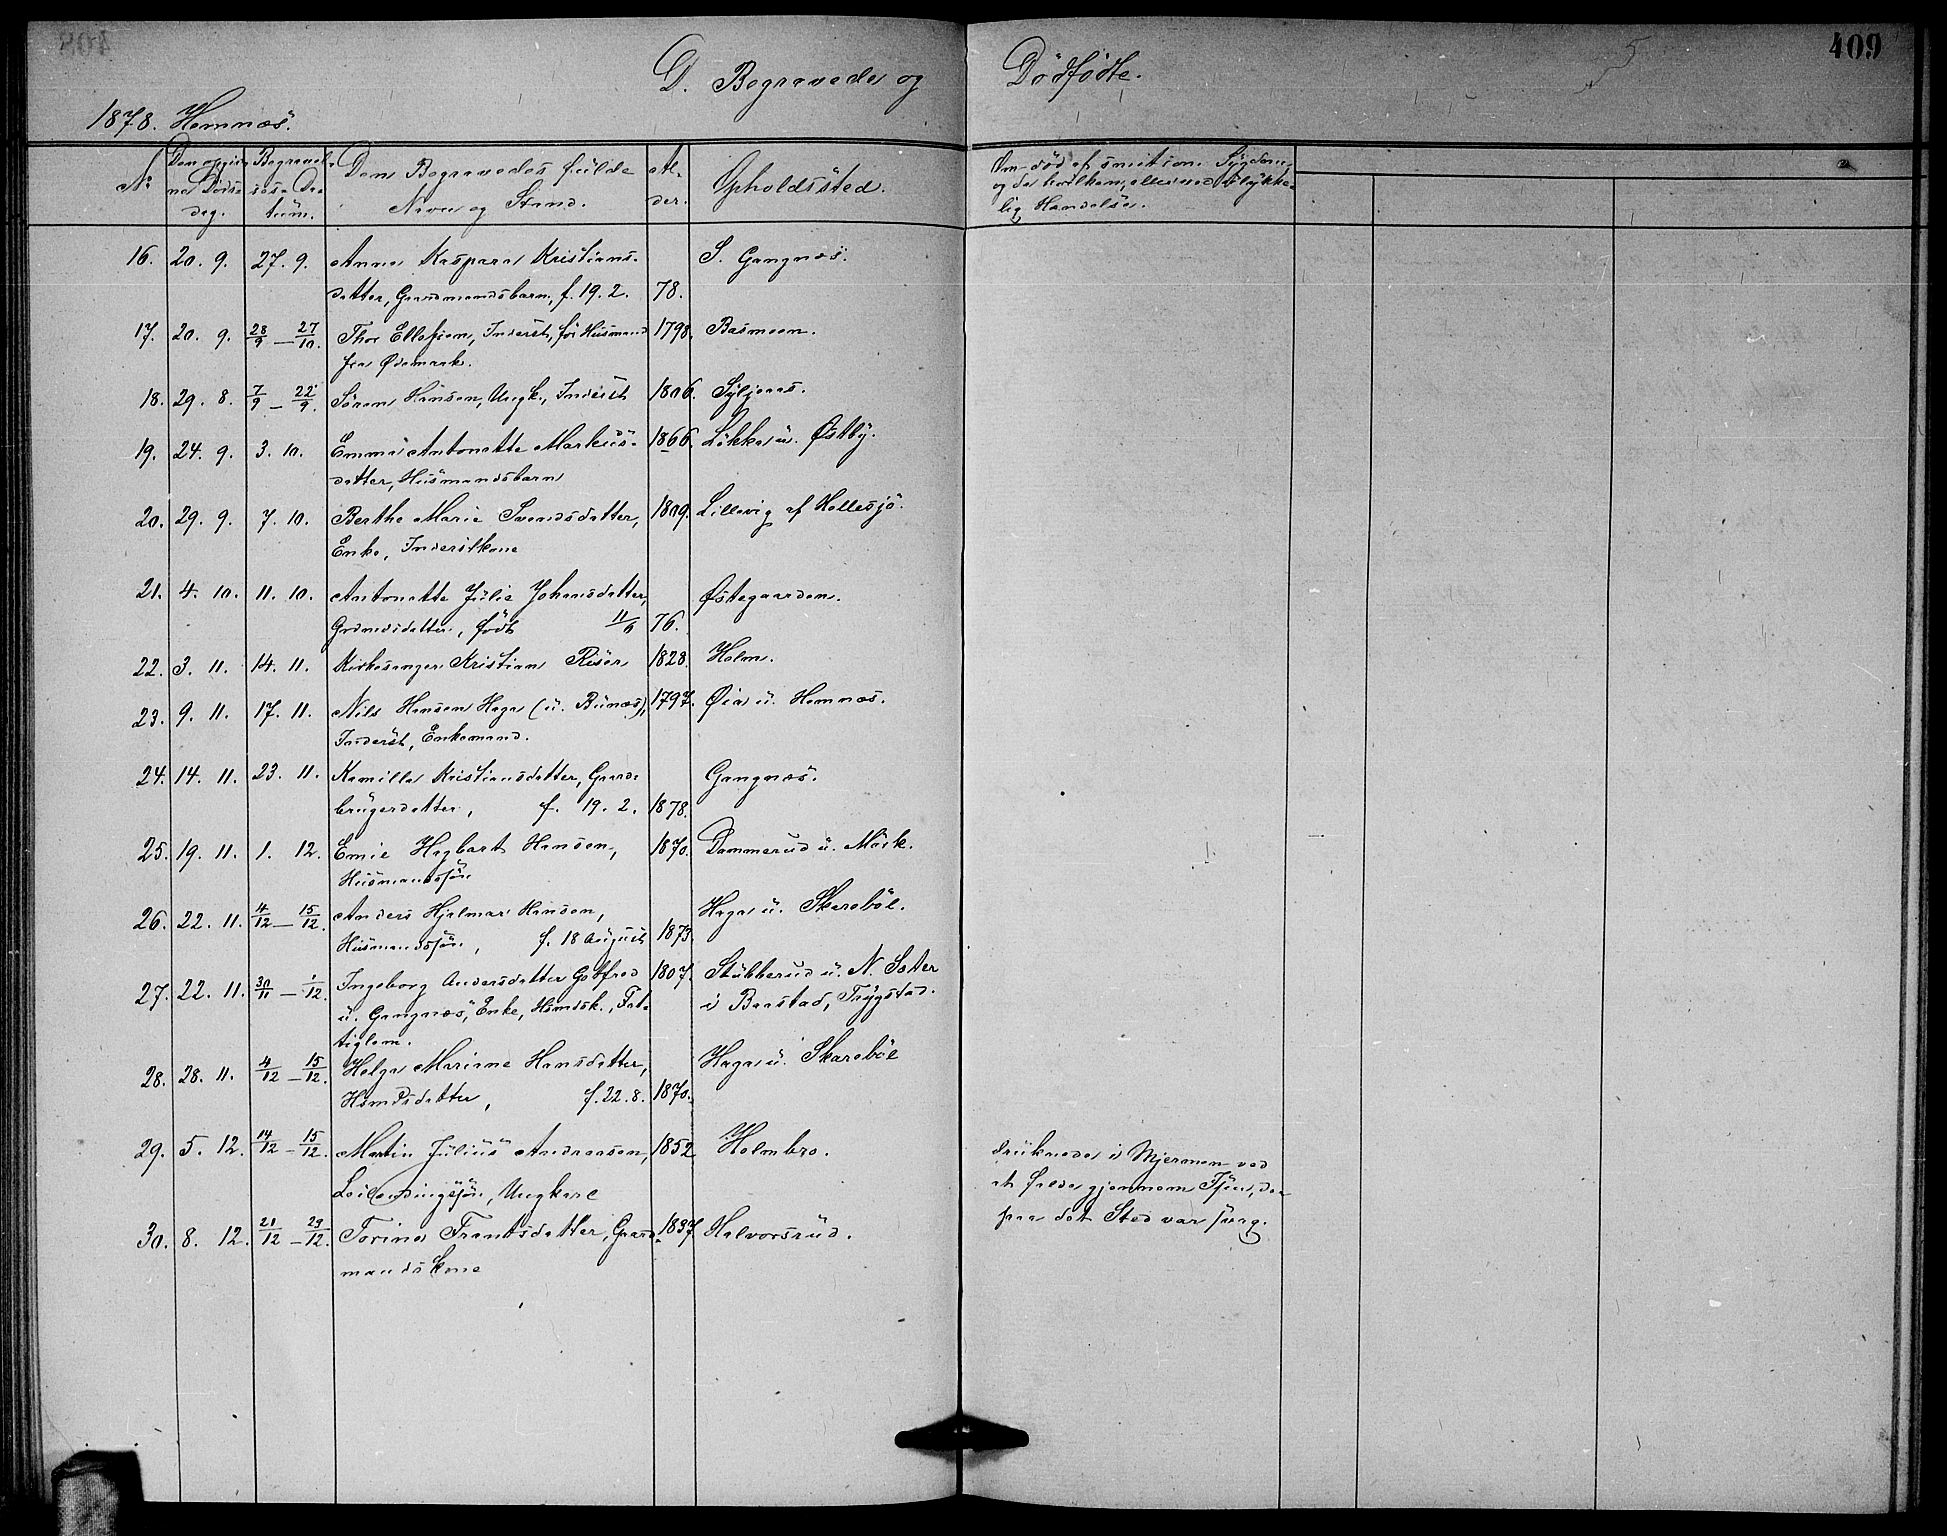 409
D. Begravede og Dödfödte.
1878. Hemnæs.
No Den opgivne Dödsdag. Begravelsens Datum. Den Begravedes fulde Navn og Stand. Alder. Opholdssted. Om död af smitsom Sygdom og da hvilken, eller ved ulykkelig Hændelse.
16. 20. 9. 27. 9. Anna Kaspara Kristians- S. Gangnæs.
datter, Gaardmandsbarn, f. 19. 2. 78.
17. 20. 9. 28/9 – 27/10. Thor Ellefsen, Inderst, för Husmand 1798. Basmoen.
fra Ödemark.
18. 29. 8. 7/9 – 22/9. Sören Hansen, Ungk., Inderst 1806. Syljeaas.
19. 24. 9. 3. 10. Emma Antonette Markus- 1866. Løkka u. Østby.
datter, Husmandsbarn
20. 29. 9. 7. 10. Berthe Marie Svendsdatter, 1809. Lillevig af Hellesjö.
Enke, Inderstkone
21. 4. 10. 11. 10. Antonette Julie Johansdatter, Østegaarden.
Grdmdsdatter, födt 11/6 76.
22. 3. 11. 14. 11. Kirkesanger Kristian Risör 1828. Holm.
23. 9. 11. 17. 11. Nils Hansen Haga (u. Bunæs), 1797. Øia u. Hemnæs.
Inderst, Enkemand.
24. 14. 11. 23. 11. Kamilla Kristiansdatter, Gaard- Gangnæs.
brugerdatter, f. 19. 2. 1878.
25. 19. 11. 1. 12. Emil Hagbart Hansen, 1870. Dammerud u. Mörk.
Husmandssön
26. 22. 11. 4/12 – 15/12. Anders Hjalmar Hansen, Haga u. Skaraböl.
Husmandssön, f. 18 August 1873.
27. 22. 11. 30/11 – 1/12. Ingeborg Andersdatter Gotfred 1807. Stubberud u. N. Sæter
u. Gangnæs, Enke, Hsmdsk., Fat- i Baastad, Trygstad.
tiglem.
28. 28. 11. 4/12 – 15/12. Helga Mariane Hansdatter, Haga u. Skaraböl
Hsmdsdatter, f. 22. 8. 1870.
29. 5. 12. 14/12 – 15/12. Martin Julius Andreassen, 1852 Holmbro. druknede i Mjermen ved
Leilændingssön, Ungkarl at falde gjennem Isen, der
paa det Sted var svag.
30. 8. 12. 21/12 – 29/12. Torine Frantsdatter, Gaard- 1837 Halvorsrud.
mandskone